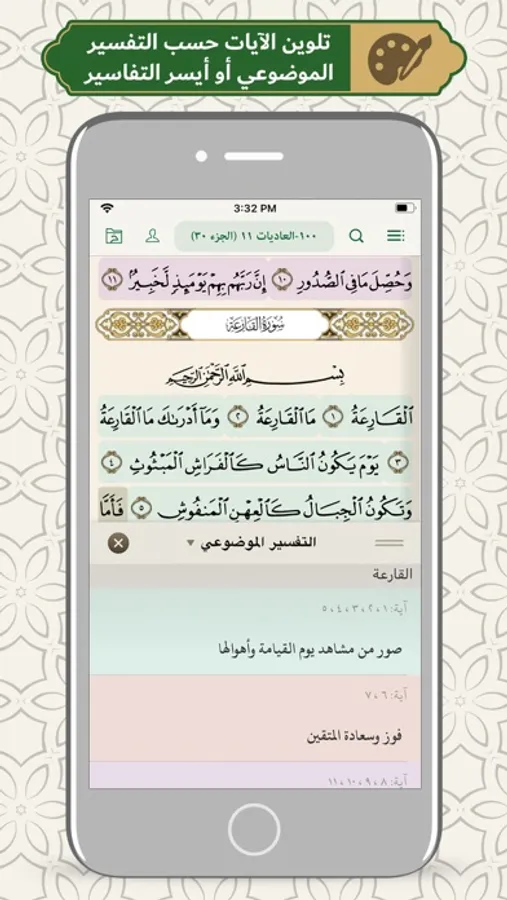 تلوين الآيات حسب التفسير
الموضوعي أو أيسر التفاسير
3:32 PM
١٠٠-العاديات ١١ (الجزء ٣٠)
وَحُصِّلَ مَا فِي ٱلصُّدُورِ ١٠ إِنَّ رَبَّهُم بِهِمْ يَوْمَئِذٍ لَّخَبِيرٌۢ ١١
سُورَةُ القَارِعَةِ
بِسْمِ ٱللَّهِ ٱلرَّحْمَٰنِ ٱلرَّحِيمِ
ٱلْقَارِعَةُ ١ مَا ٱلْقَارِعَةُ ٢ وَمَآ أَدْرَىٰكَ مَا ٱلْقَارِعَةُ
٣ يَوْمَ يَكُونُ ٱلنَّاسُ كَٱلْفَرَاشِ ٱلْمَبْثُوثِ ٤
وَتَكُونُ ٱلْجِبَالُ كَٱلْعِهْنِ ٱلْمَنفُوشِ ٥ فَأَمَّا
التفسير الموضوعي
القارعة
آية: ١، ٢، ٣، ٤، ٥
صور من مشاهد يوم القيامة وأهوالها
آية: ٦، ٧
فوز وسعادة المتقين
آية: ٨، ٩، ١٠، ١١